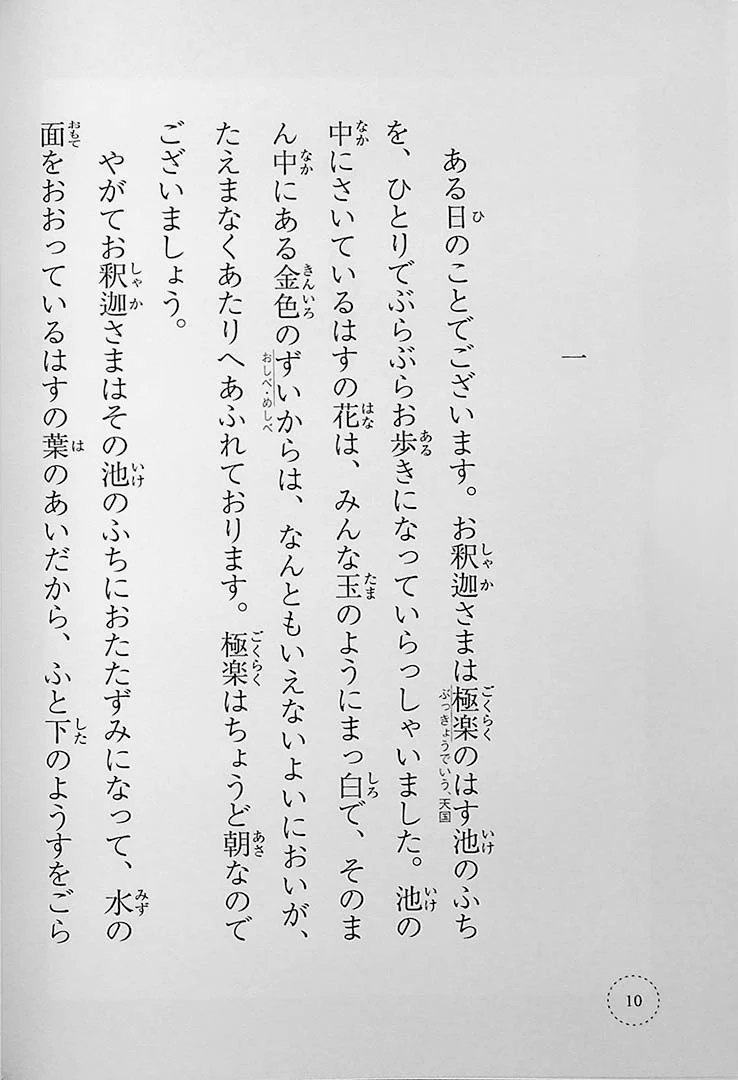 一
ある日のことでございます。お釈迦さまは極楽のはす池のふち
ひ
しゃか
ごくらく
いけ
ぶっきょうでいう、天国
を、ひとりでぶらぶらお歩きになっていらっしゃいました。池の
ある
いけ
中にさいているはすの花は、みんな玉のようにまっ白で、そのま
なか
はな
たま
しろ
ん中にある金色のずいからは、なんともいえないよいにおいが、
なか
きんいろ
おしべ・めしべ
たえまなくあたりへあふれております。極楽はちょうど朝なので
ごくらく
あさ
ございましょう。
やがてお釈迦さまはその池のふちにおたたずみになって、水の
しゃか
いけ
みず
面をおおっているはすの葉のあいだから、ふと下のようすをごら
おもて
は
した
10